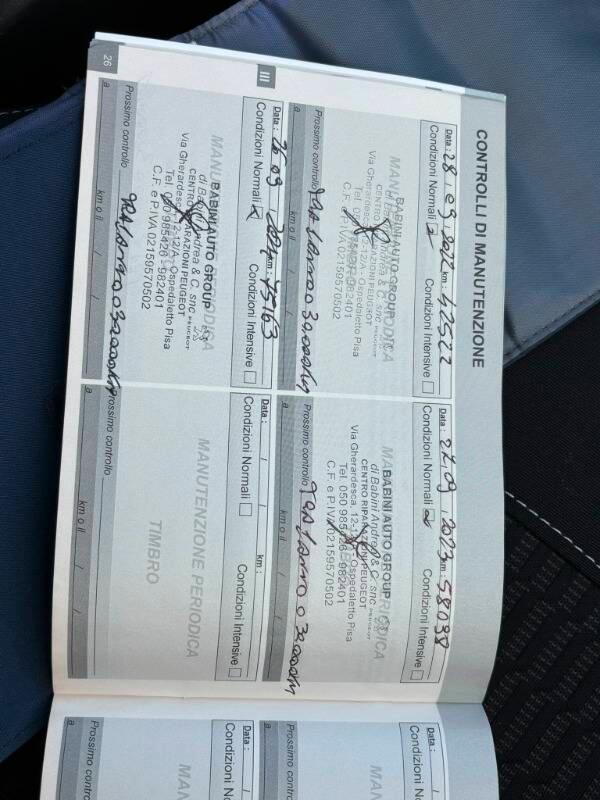 CONTROLLI DI MANUTENZIONE
Data : 28 . 09 . 2022 km : 42522
Condizioni Normali Condizioni Intensive
MANUTENZIONE PERIODICA
BABINI AUTO GROUP
di Babini Andrea & C. snc
CENTRO RIPARAZIONI PEUGEOT
Via Gherardesca, 12-12/A - Ospedaletto Pisa
Tel. 050 985426 - 982401
C.F. e P.IVA 02159570502
Prossimo controllo 30.000 Km
a km o il / /
Data : 27 . 09 . 2023 km : 58038
Condizioni Normali Condizioni Intensive
BABINI AUTO GROUP
di Babini Andrea & C. snc PEUGEOT
CENTRO RIPARAZIONI PEUGEOT
Via Gherardesca, 12-12/A - Ospedaletto Pisa
Tel. 050 985426 - 982401
C.F. e P.IVA 02159570502
Prossimo controllo 1 anno o 30.000 Km
a km o il / /
III
Data : 26 . 09 . 2024 km : 75163
Condizioni Normali Condizioni Intensive
MANUTENZIONE PERIODICA
BABINI AUTO GROUP
di Babini Andrea & C. snc PEUGEOT
CENTRO RIPARAZIONI PEUGEOT
Via Gherardesca, 12-12/A - Ospedaletto Pisa
Tel. 050 985426 - 982401
C.F. e P.IVA 02159570502
Prossimo controllo 1 anno o 30.000 Km
a km o il / /
Data : / / km :
Condizioni Normali Condizioni Intensive
MANUTENZIONE PERIODICA
TIMBRO
Prossimo controllo
a km o il / /
26
Data : /
Condizioni No
MAN
Prossimo contro
a
Data : /
Condizioni No
MAN
Prossimo contro
a